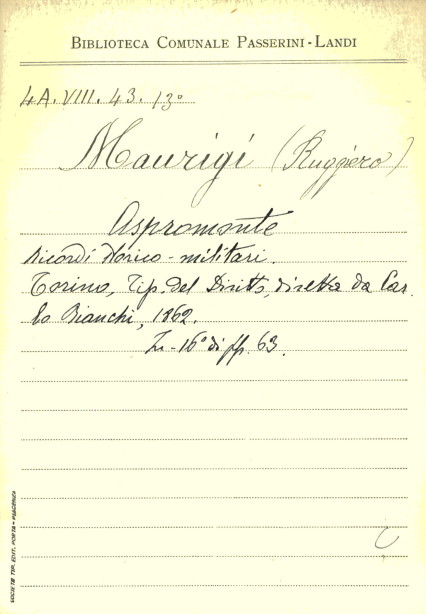 BIBLIOTECA COMUNALE PASSERINI-LANDI
4A. VIII. 43. 13º
Maurigi (Ruggiero)
Aspromonte
Ricordi storico-militari.
Torino, Tip. del Diritto, diretta da Car
lo Bianchi, 1862.
In-16º di pp. 63.
SOCIETÀ TIP. EDIT. PORTA - PIACENZA